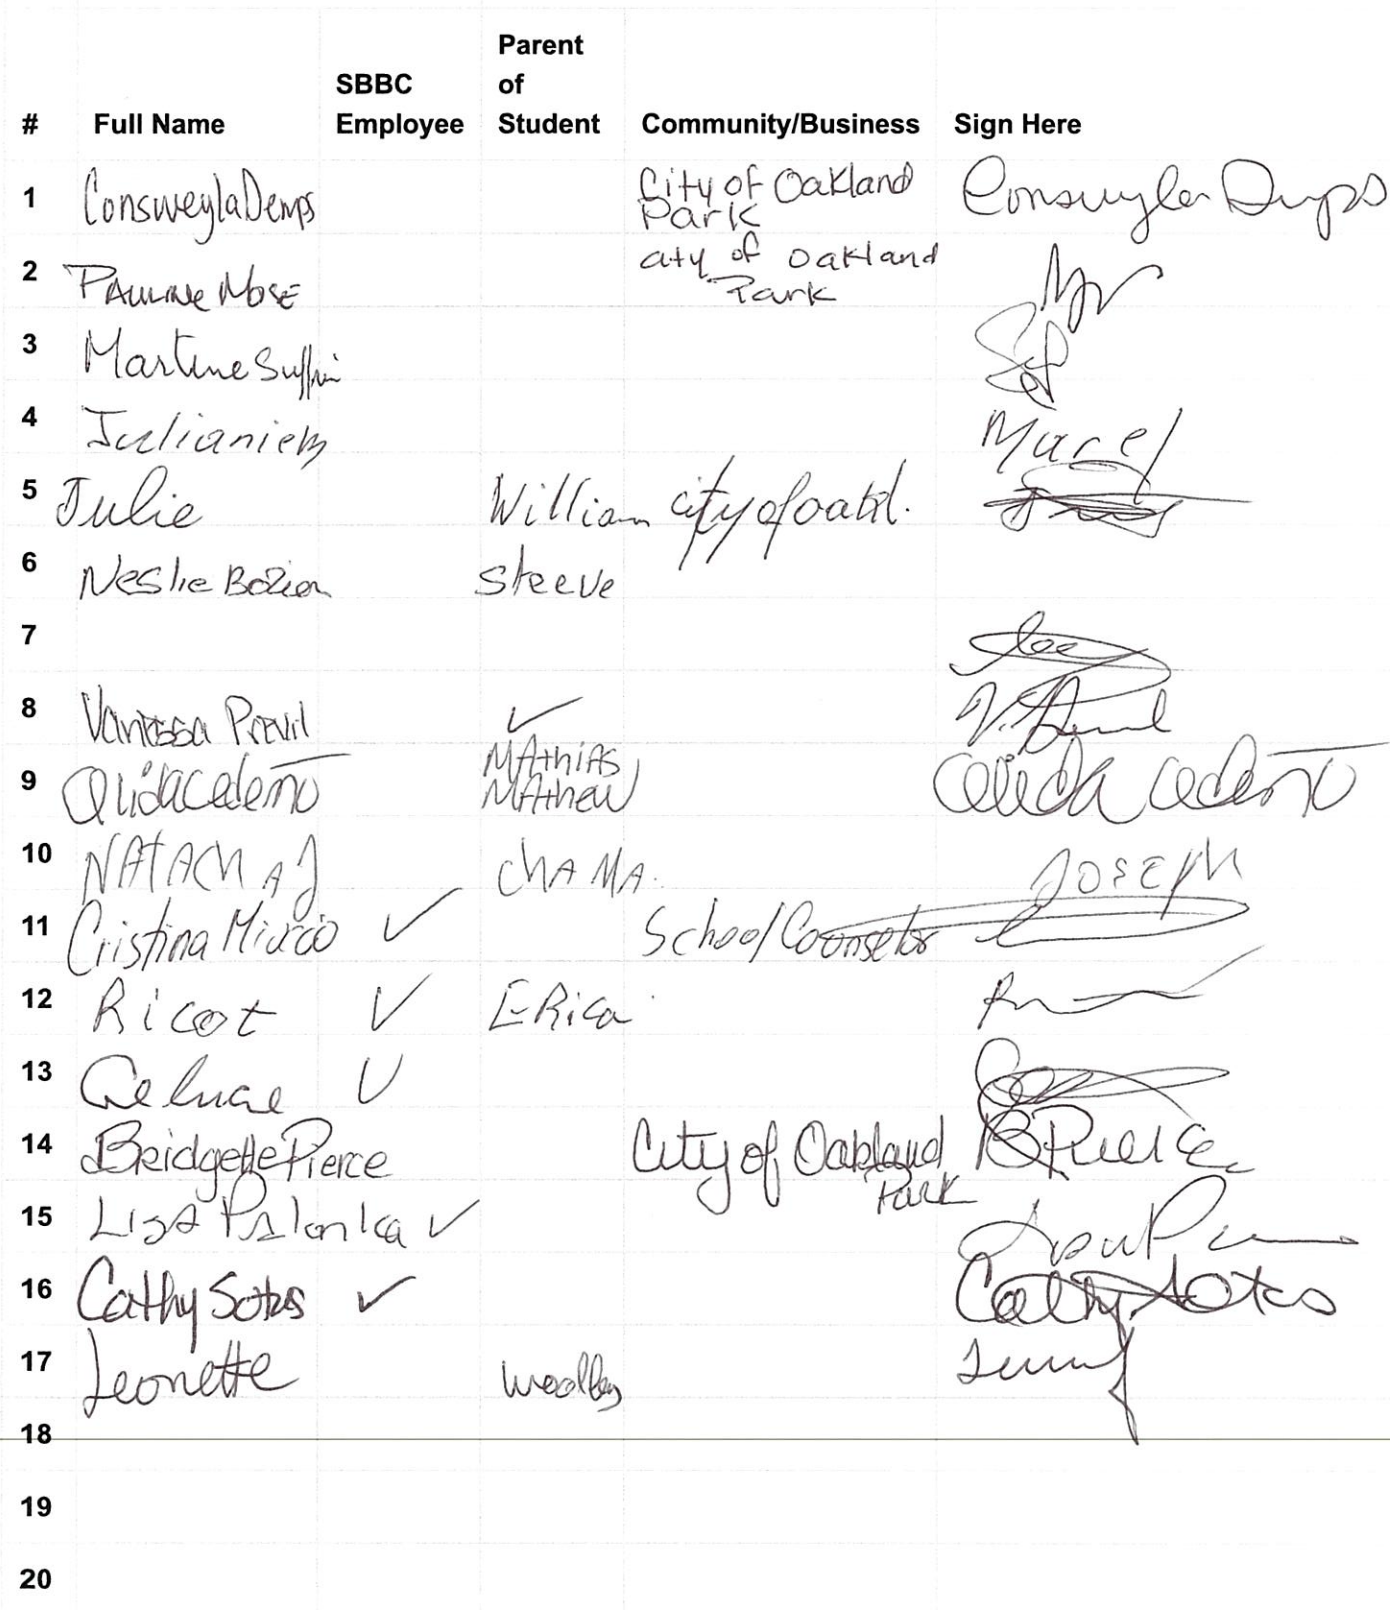 Parent
SBBC of
# Full Name Employee Student Community/Business Sign Here
1 Consweyla Demps City of Oakland Park Consweyla Demps
2 Pauline Mose City of Oakland Park
3 Martine
4 Marel
5 Julie William city of oakl.
6 Neslie Steeve
7
8 Vanessa Previl ✓
9 Alida Cedeño Mathias Mathew Alida Cedeño
10 NATACHA J CHAMA. JOSEPH
11 Cristina ✓ School Counselor
12 Ricot ✓ Erica
13 ✓
14 Bridgette Pierce City of Oakland Park B Pierce
15 Lisa ✓
16 Cathy Sotos ✓ Cathy Sotos
17 Leonette
18
19
20